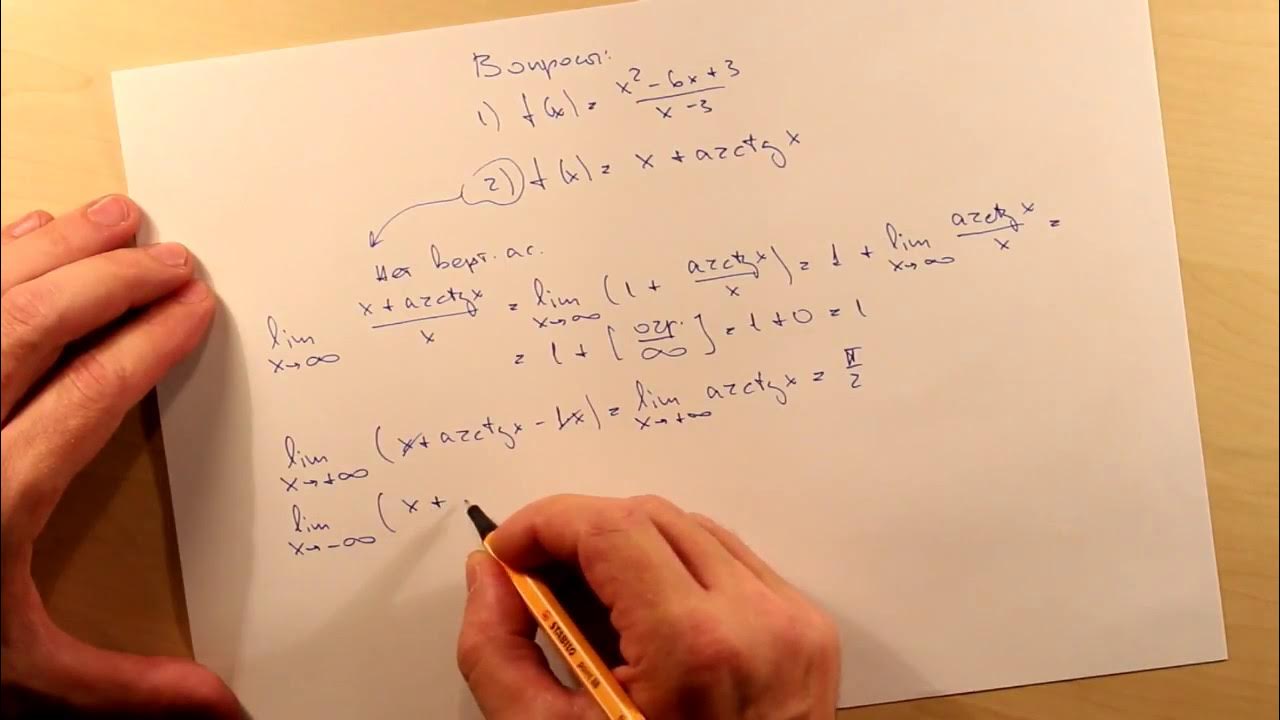 Вопросы:
1) f(x) = x² - 6x + 3 / x - 3
2) f(x) = x + arctg x
Нет верт. ас.
lim x→∞ x + arctg x / x = lim x→∞ (1 + arctg x / x) = 1 + lim x→∞ arctg x / x =
= 1 + [огр. / ∞] = 1 + 0 = 1
lim x→+∞ (x + arctg x - 1x) = lim x→+∞ arctg x = π / 2
lim x→-∞ (x +
STABILO
point 88